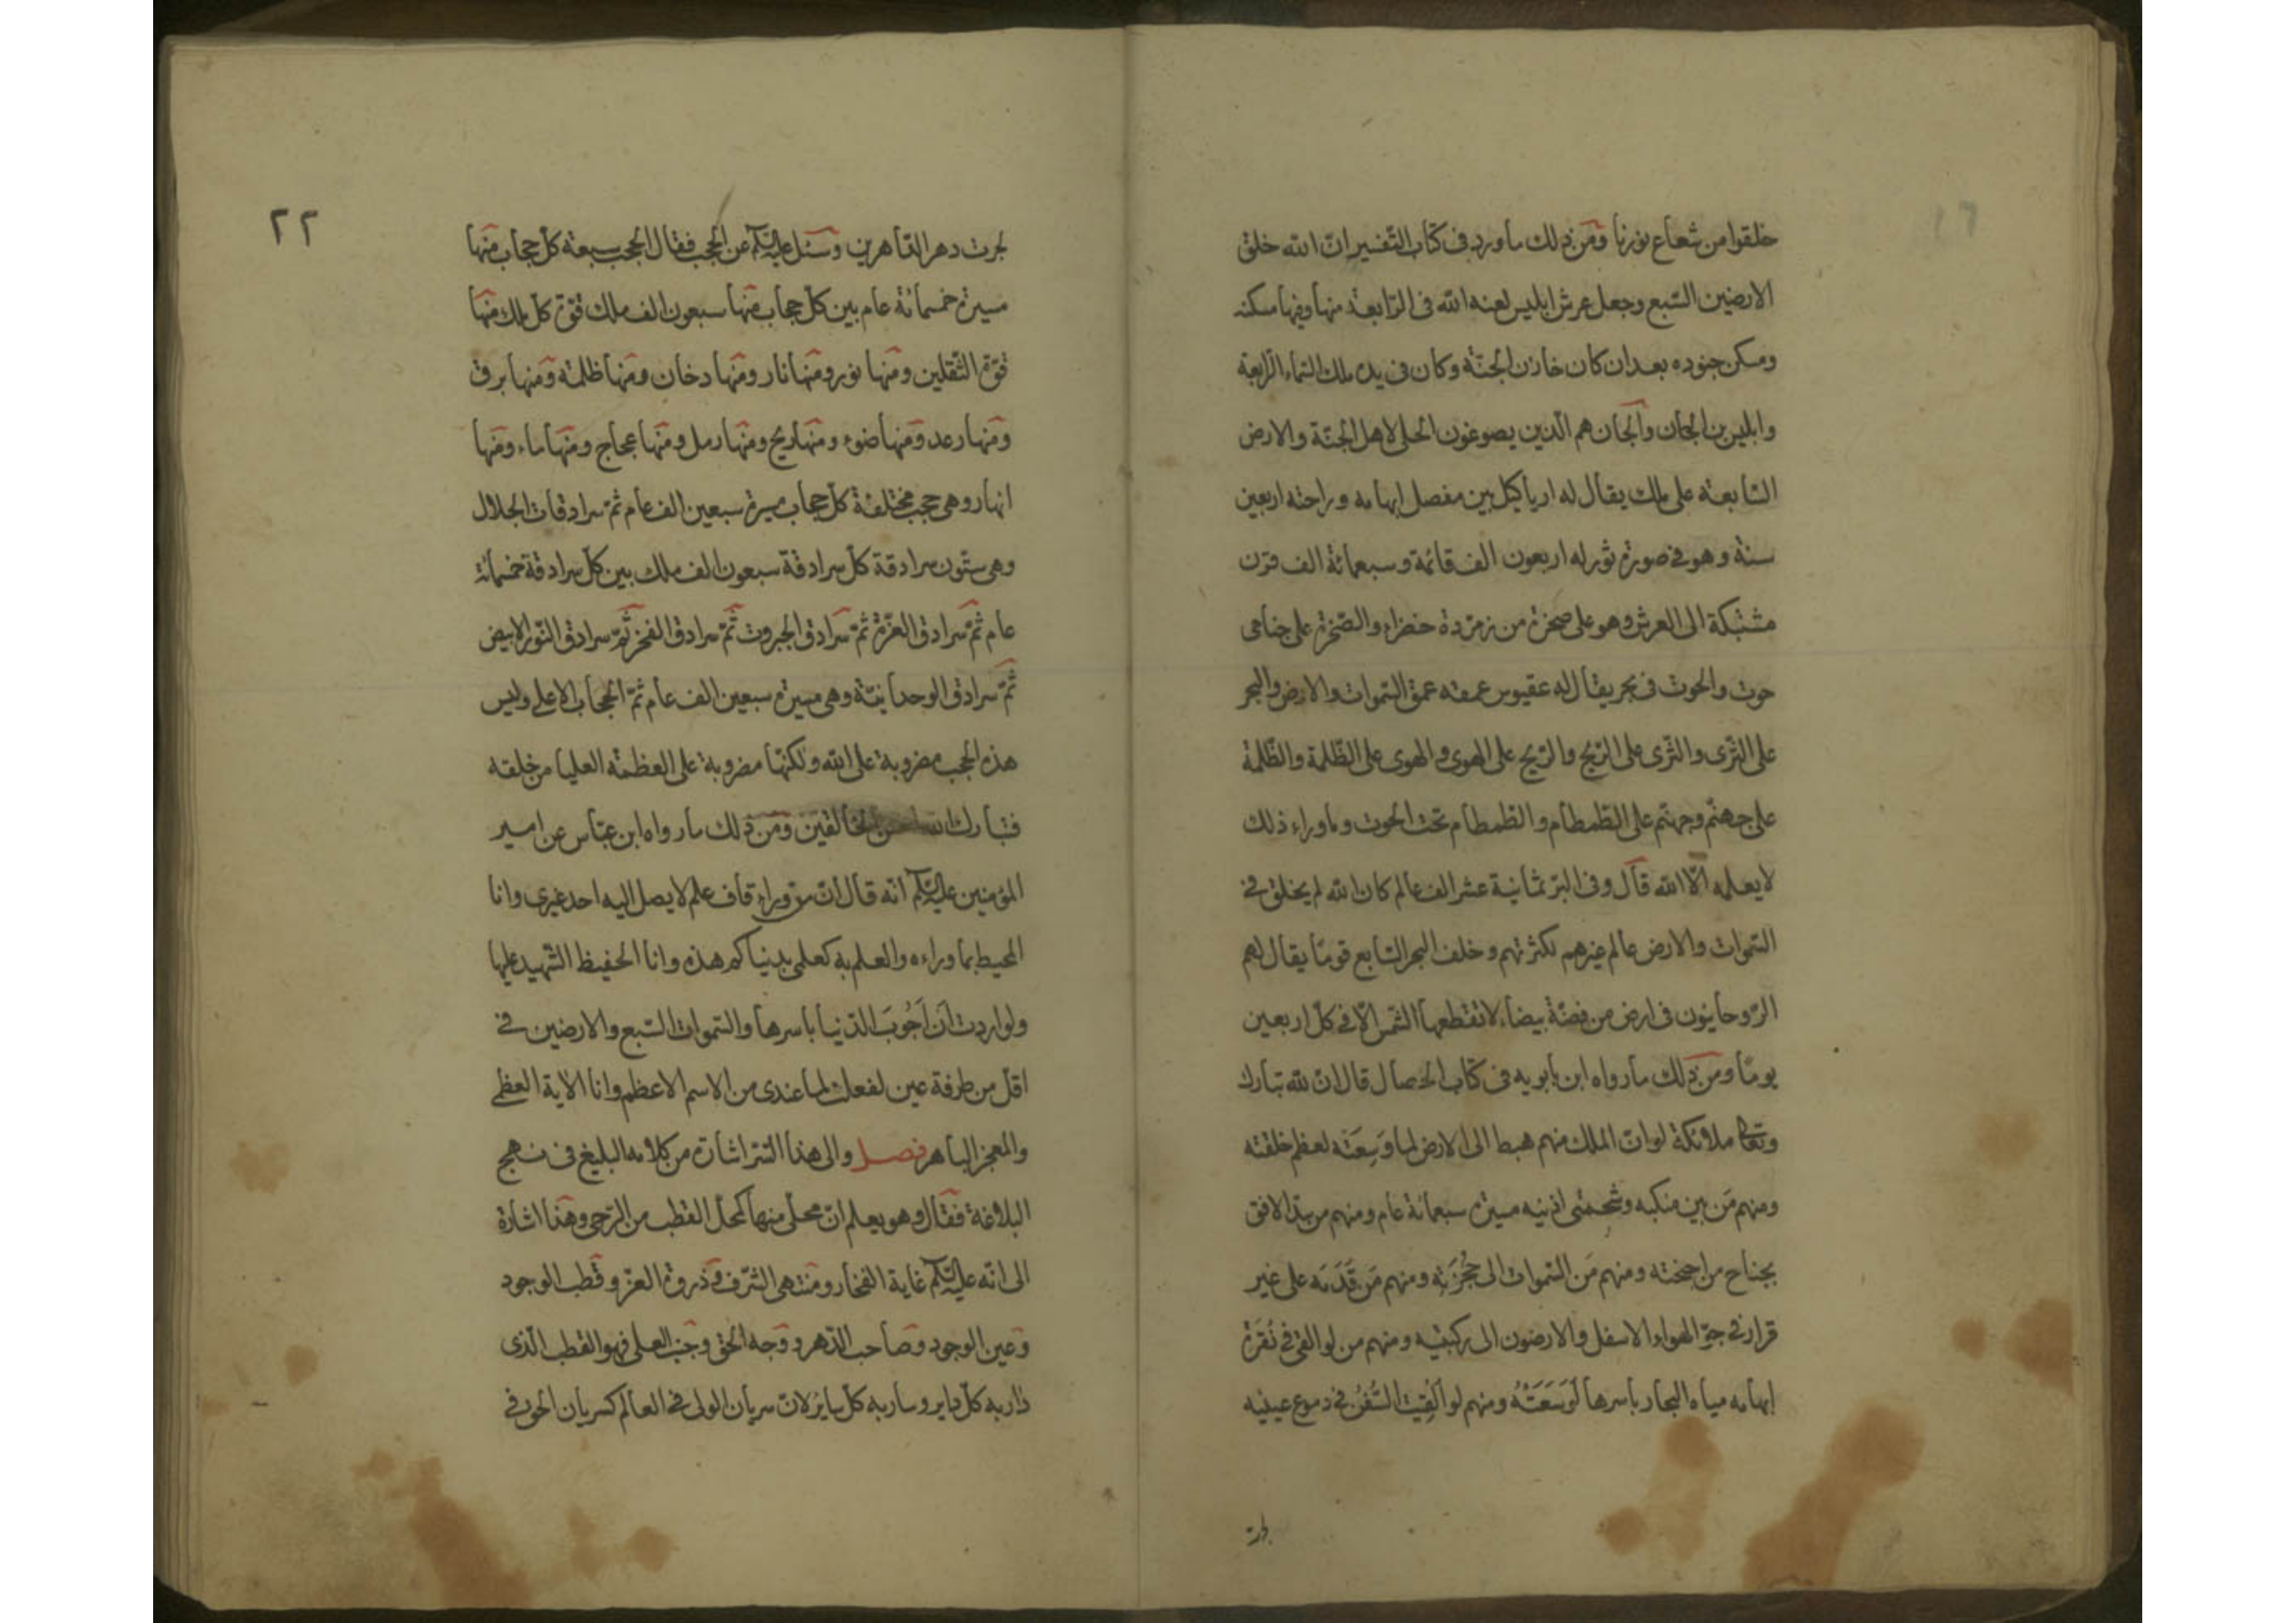 خلقوا من شعاع نورنا ومن ذلك ما ورد في كتاب التفسير ان الله خلق
الارضين السبع وجعل عرش ابليس لعنه الله في الرابعة منها وفيها مسكنه
ومسكن جنوده بعد ان كان خازن الجنة وكان في يده ملك السماء الرابعة
وابليس بن الجان والجان هم الذين يصوغون الحلى لاهل الجنة والارض
السابعة على ملك يقال له ارياكيل بين مفصل ابهامه وراحته اربعين
سنة وهو في صورة ثور له اربعون الف قائمة وسبعمائة الف قرن
مشتبكة الى العرش وهو على صخرة من زمردة خضراء والصخرة على جناحى
حوت والحوت في بحر يقال له عقيوس عمقه عمق السموات والارض والبحر
على الثرى والثرى على الريح والريح على الهوى والهوى على الظلمة والظلمة
على جهنم وجهنم على الطمطام والطمطام تحت الحوت وما وراء ذلك
لا يعلمه الا الله قال وفى البر ثمانية عشر الف عالم كان الله لم يخلق في
السموات والارض عالم غيرهم لكثرتهم وخلف البحر السابع قوما يقال لهم
الروحانيون في ارض من فضة بيضاء لا تقطعها الشمس الا في كل اربعين
يوما ومن ذلك ما رواه ابن بابويه في كتاب الخصال قال ان لله تبارك
وتعالى ملائكة لو ان الملك منهم هبط الى الارض لما وَسِعَتَه لعظم خلقته
ومنهم مَن بين منكبه وشحمتى اذنيه مسيرة سبعمائة عام ومنهم من سد الافق
بجناح من اجنحته ومنهم مَن السموات الى حُجُزَتِه ومنهم مَن قَدَمَه على غير
قرار في جو الهواء الاسفل والارضون الى ركبتيه ومنهم من لو القى في نُقرَة
ابهامه مياه البحار باسرها لَوَسَعَتْهُ ومنهم لو اُلقِيت السُّفن في دموع عينيه
لجرت
٢٢
لجرت دهر الداهرين وسئل عليه السلم عن الحجب فقال الحجب سبعة كل حجاب منها
مسيرة خمسمائة عام بين كل حجاب منها سبعون الف ملك قوة كل ملك منها
قوة الثقلين ومنها نور ومنها نار ومنها دخان ومنها ظلمة ومنها برق
ومنها رعد ومنها ضوء ومنها ريح ومنها رمل ومنها عجاج ومنها ماء ومنها
انهار وهى حجب مختلفة كل حجاب مسيرة سبعين الف عام ثم سرادقات الجلال
وهى ستون سرادقة كل سرادقة سبعون الف ملك بين كل سرادقة خمسمائة
عام ثم سرادق العزة ثم سرادق الجبروت ثم سرادق الفخر ثم سرادق النور الابيض
ثم سرادق الوحدانية وهى مسيرة سبعين الف عام ثم الحجاب الاعلى وليس
هذه الحجب مضروبة على الله ولكنها مضروبة على العظمة العليا من خلقه
فتبارك الله احسن الخالقين ومن ذلك ما رواه ابن عباس عن امير
المؤمنين عليه السلم انه قال ان من وراء قاف علم لا يصل اليه احد غيرى وانا
المحيط بما وراءه والعلم به كعلمى بدنياكم هذه وانا الحفيظ الشهيد عليها
ولو اردت ان اَجُوبَ الدنيا باسرها والسموات السبع والارضين في
اقل من طرفة عين لفعلت لما عندى من الاسم الاعظم وانا الاية العظمى
والمعجز الباهر فصل والى هذا السر اشارة من كلامه البليغ في نهج
البلاغة فقال وهو يعلم ان محلى منها كمحل القطب من الرحى وهذا اشارة
الى انه عليه السلم غاية الفخار ومنتهى الشرف وذروة العز وقطب الوجود
وعين الوجود وصاحب الدهر ووجه الحق وجنب العلى فهو القطب الذى
دار به كل داير وسار به كل ساير لان سريان الولى في العالم كسريان الحق في